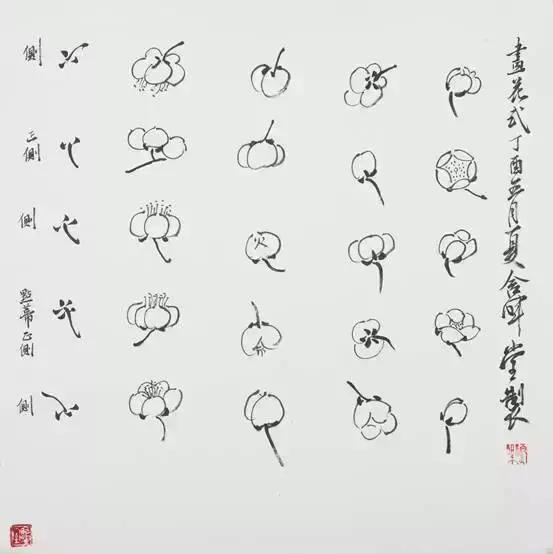 畫花式丁酉五月夏含晖堂製
側
正側
側
點蒂正側
側